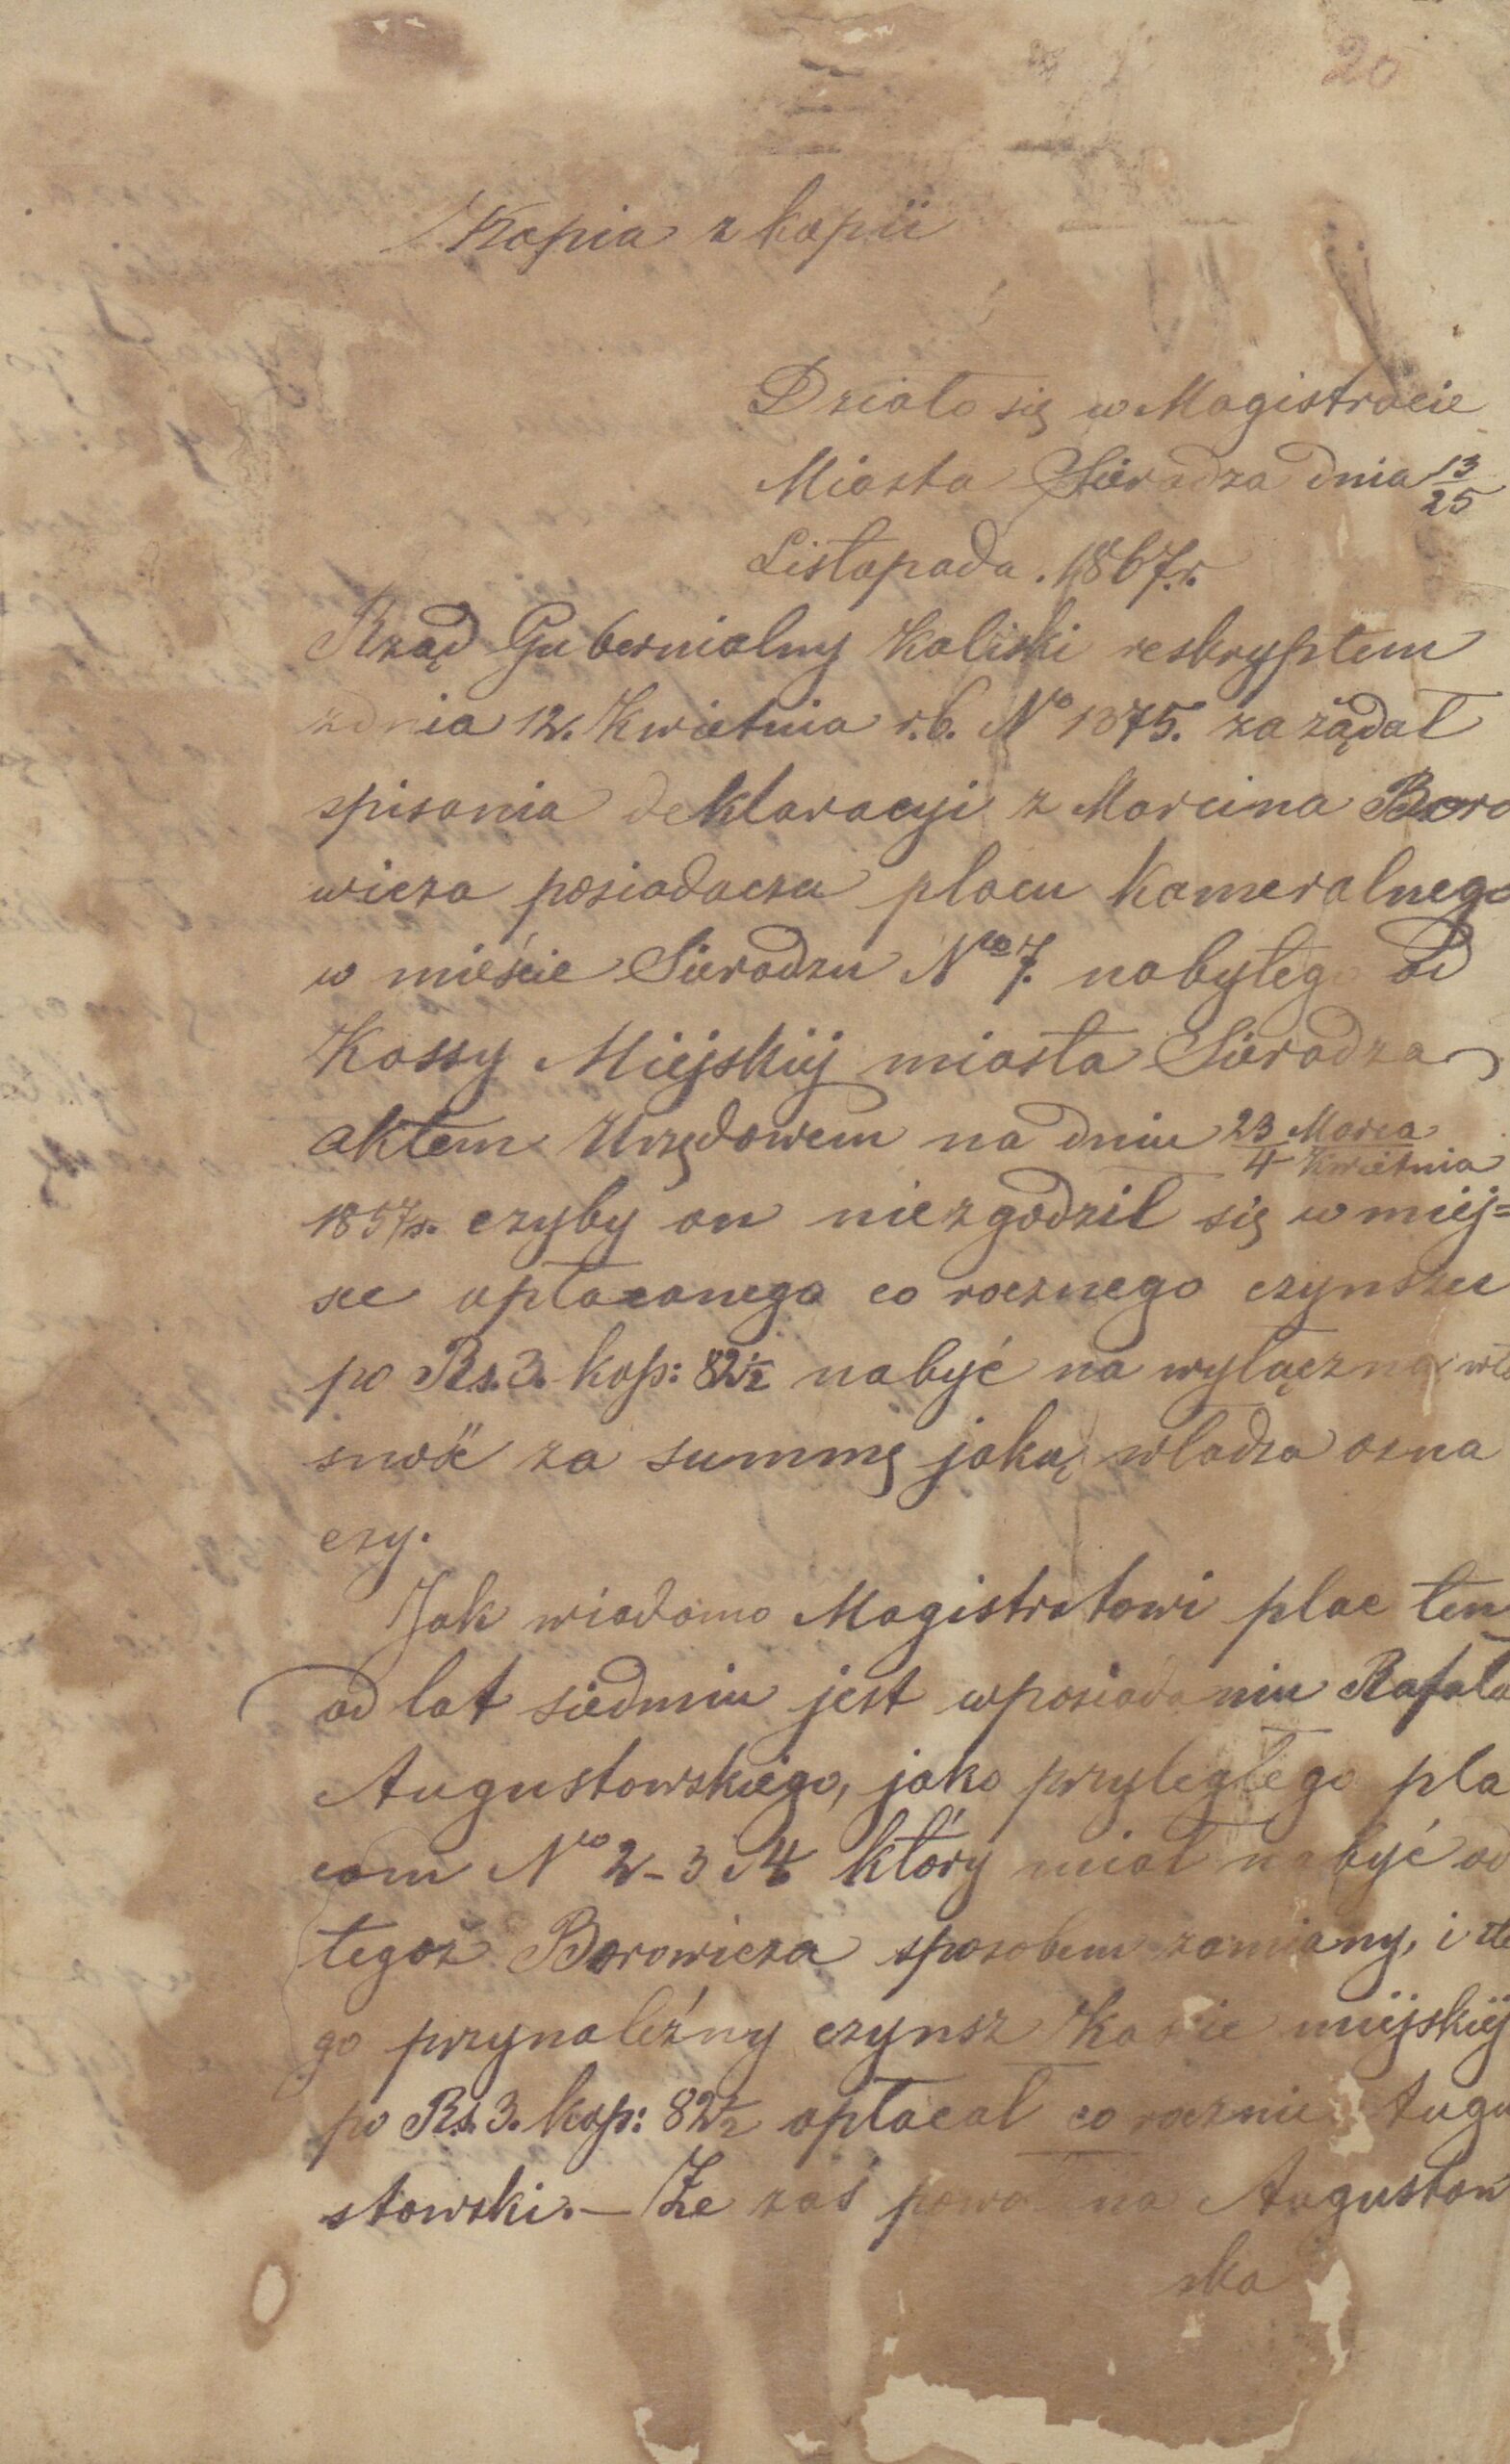 20
Kopia z kopii
Działo się w Magistracie
Miasta Sieradza dnia 13/25
Listopada. 1867.r.
Rząd Gubernialny Kaliski reskryptem
zdnia 12. Kwietnia r.b. No 1375. zażądał
spisania deklaracyi z Marcina Boro
wicza posiadacza placu Kameralnego
w mieście Sieradzu Nro 7. nabytego od
Kassy Miejskiej miasta Sieradza
aktem Urzędowem na dniu 23 Marca / 4 Kwietnia
1857r. czyby on niezgodził się w miej=
sce opłacanego co rocznego czynszu
po Rs. 3. kop: 82½ nabyć na wyłączną wła
sność za summę jaką władza ozna
czy.
Jak wiadomo Magistratowi plac ten
od lat siedmiu jest wposiadaniu Rafała
Augustowskiego, jako przyległego pla
com Nro 2-3 i 4 który miał nabyć od
tegoż Borowicza sposobem zamiany, i
go przynależny czynsz Kassie miejskiej
po Rs. 3. kop: 82½ opłacał co rocznie Augu
stowski. — Że zaś Augustow
ska